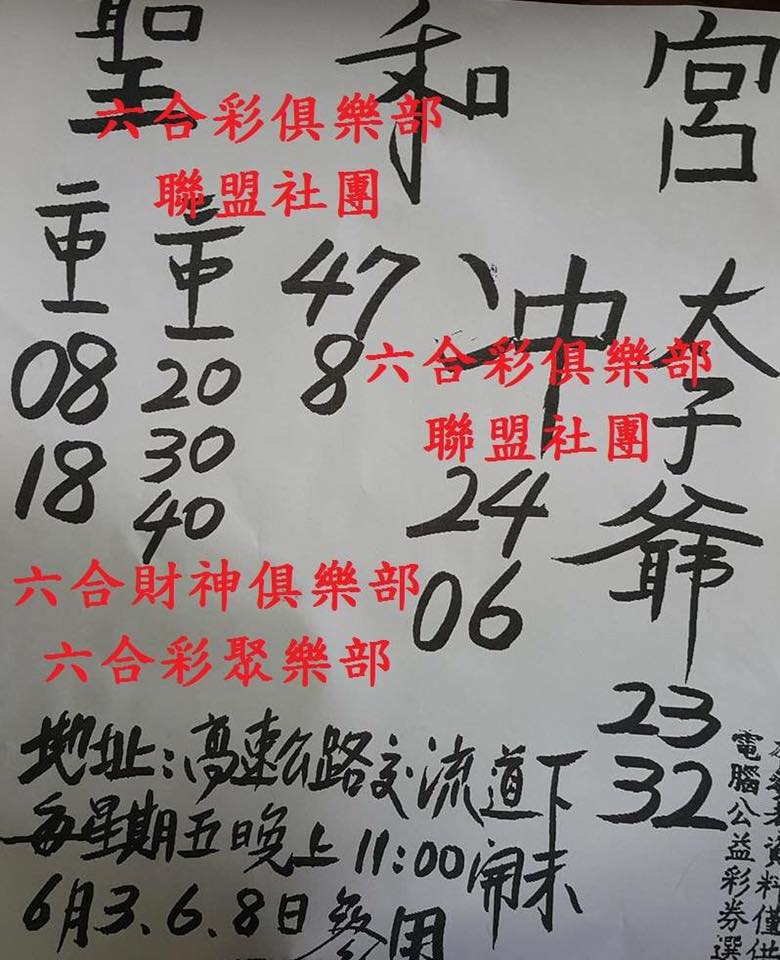 聖和宮
六合彩俱樂部
聯盟社團
太子爺
23
32
冲
24
06
47
8
中一
20
30
40
二中一
08
18
六合彩俱樂部
聯盟社團
六合財神俱樂部
六合彩聚樂部
地址:高速公路交流道下
每星期五晚上11:00開
6月3.6.8日參用
資料僅供
電腦公益彩券選